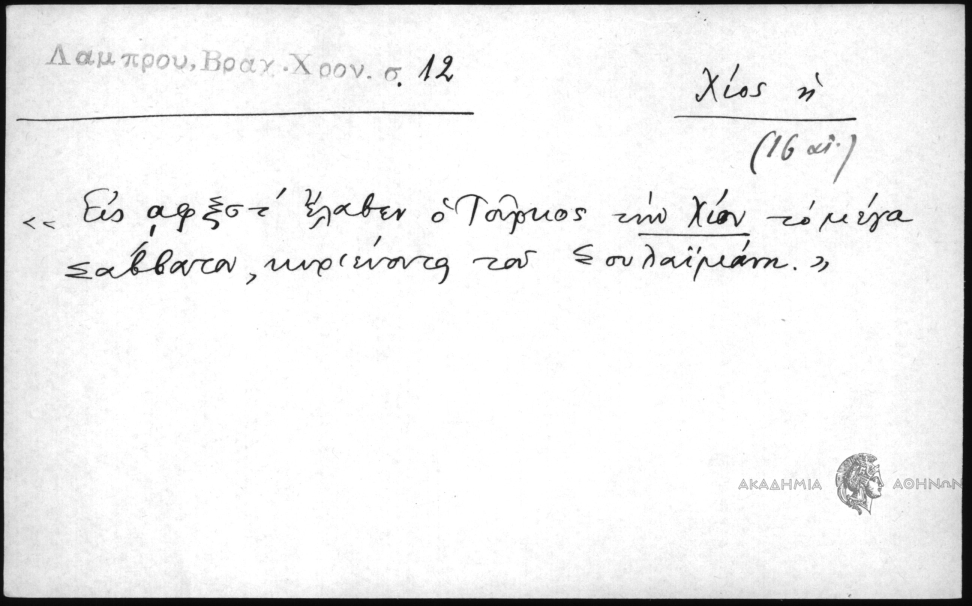 Λαμπρου, Βραχ. Χρον. σ. 12
Χίος ἡ
(16 αἰ.)
« Εἰς ͵αφξστ´ ἔλαβεν ὁ Τοῦρκος τὴν Χίον τὸ μέγα
Σάββατον, κυριεύοντος τοῦ Σουλαϊμάνη. »
ΑΚΑΔΗΜΙΑ ΑΘΗΝΩΝ